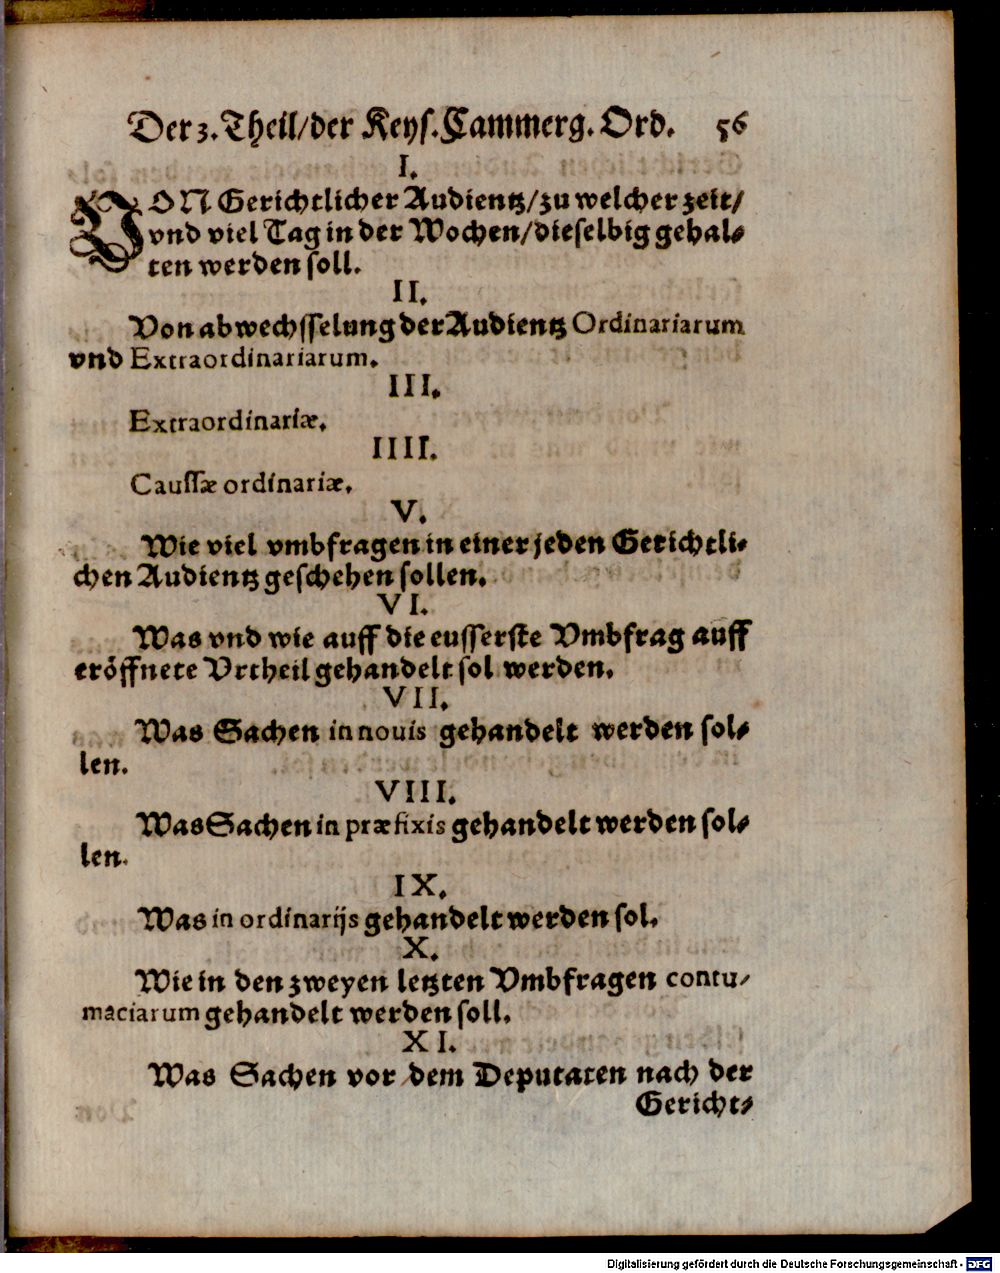 Der 3. Theil/der Keys. Cammerg. Ord. 56
I.
VON Gerichtlicher Audientz/zu welcher zeit/
vnd viel Tag in der Wochen/dieselbig gehal-
ten werden soll.
II.
Von abwechsselung der Audientz Ordinariarum
vnd Extraordinariarum.
III.
Extraordinariæ.
IIII.
Caussæ ordinariæ.
V.
Wie viel vmbfragen in einer jeden Gerichtli-
chen Audientz geschehen sollen.
VI.
Was vnd wie auff die eusserste Vmbfrag auff
eröffnete Vrtheil gehandelt sol werden.
VII.
Was Sachen in nouis gehandelt werden sol-
len.
VIII.
Was Sachen in præfixis gehandelt werden sol-
len.
IX.
Was in ordinarijs gehandelt werden sol.
X.
Wie in den zweyen letzten Vmbfragen contu-
maciarum gehandelt werden soll.
XI.
Was Sachen vor dem Deputaten nach der
Gericht-
Digitalisierung gefördert durch die Deutsche Forschungsgemeinschaft - DFG